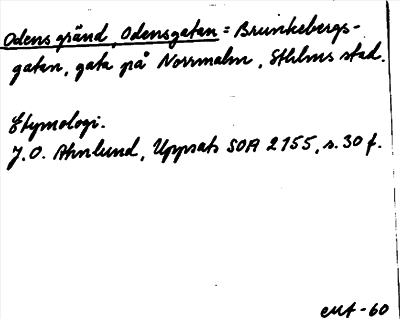 Odens gränd, Odensgatan = Brunkebergs-
gatan, gata på Norrmalm, Sthlms stad.
Etymologi.
J. O. Ahnlund, Uppsats SOA 2155, s. 30 f.
-60